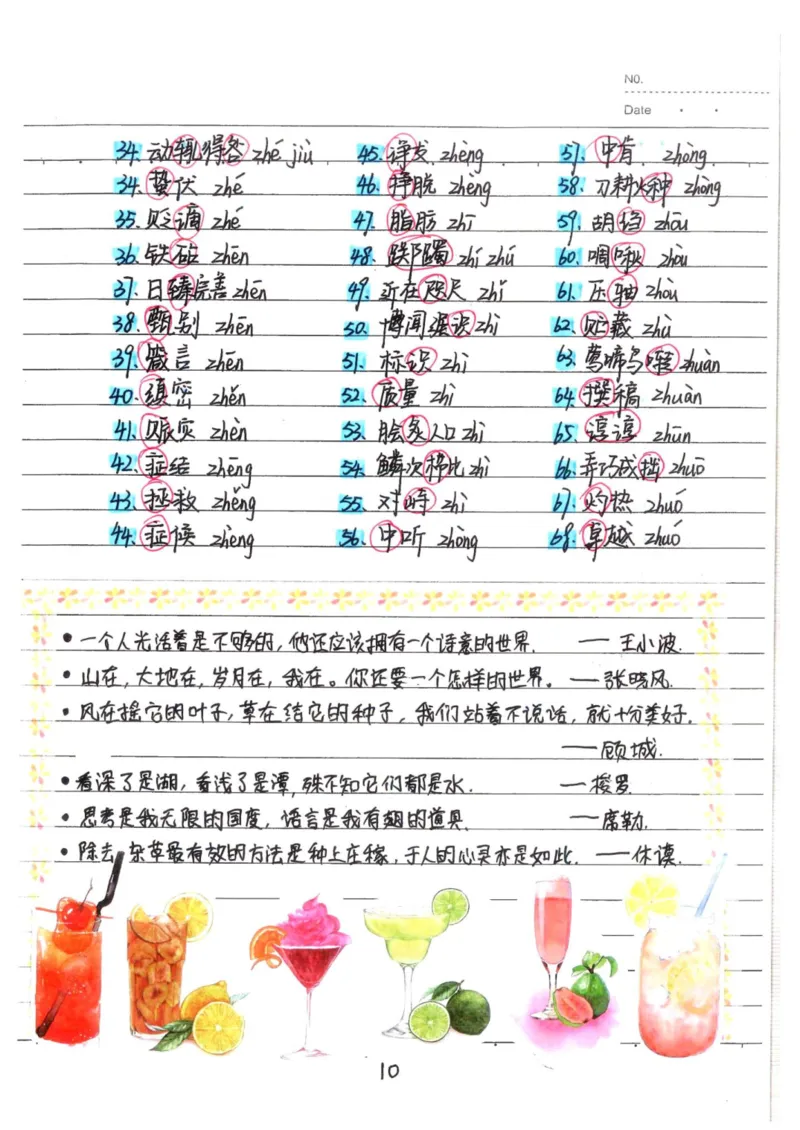 NO.
Date
34. 动辄得咎 zhé jiù
34. 蛰伏 zhé
35. 贬谪 zhé
36. 铁砧 zhēn
37. 日臻完善 zhēn
38. 甄别 zhēn
39. 箴言 zhēn
40. 缜密 zhěn
41. 赈灾 zhèn
42. 症结 zhēng
43. 拯救 zhěng
44. 症候 zhèng
45. 诤发 zhèng
46. 挣脱 zhèng
47. 脂肪 zhī
48. 踯躅 zhí zhú
49. 近在咫尺 zhǐ
50. 博闻强识 zhì
51. 标识 zhì
52. 质量 zhì
53. 脍炙人口 zhì
54. 鳞次栉比 zhì
55. 对峙 zhì
56. 中听 zhòng
57. 中肯 zhòng
58. 刀耕火种 zhòng
59. 胡诌 zhōu
60. 啁啾 zhōu
61. 压轴 zhòu
62. 贮藏 zhù
63. 莺啼鸟啭 zhuàn
64. 撰稿 zhuàn
65. 谆谆 zhūn
66. 弄巧成拙 zhuō
67. 灼热 zhuó
68. 卓越 zhuó
• 一个人光活着是不够的，他还应该拥有一个诗意的世界. —— 王小波.
• 山在，大地在，岁月在，我在。你还要一个怎样的世界。 —— 张晓风.
• 风在摇它的叶子，草在结它的种子，我们站着不说话，就十分美好.
—— 顾城.
• 看深了是湖，看浅了是潭，殊不知它们都是水. —— 梭罗.
• 思考是我无限的国度，语言是我有翅的道具. —— 席勒.
• 除去杂草最有效的方法是种上庄稼，于人的心灵亦是如此. —— 休谟.
10